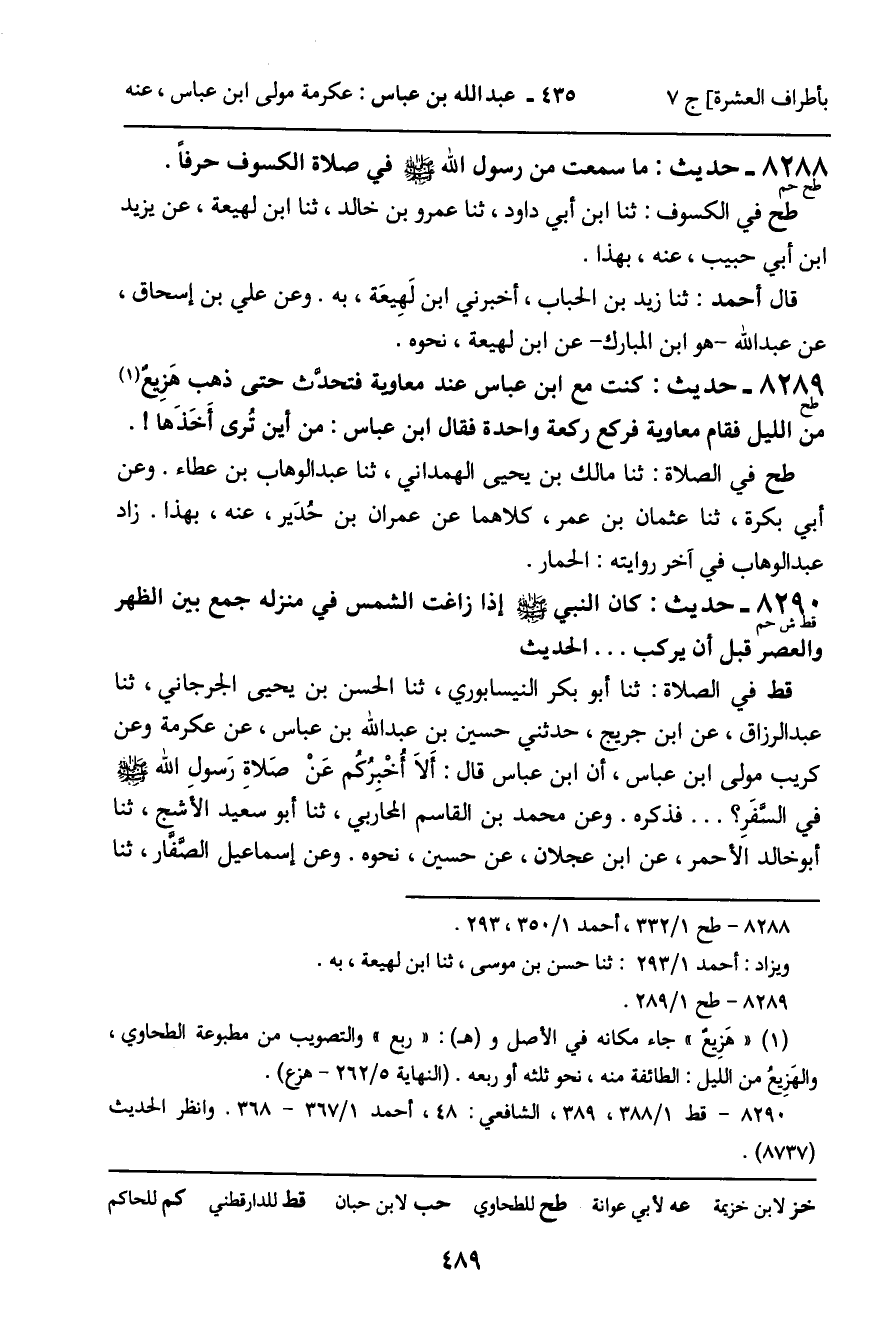 بأطراف العشرة] ج ٧ ٤٣٥ ـ عبدالله بن عباس : عكرمة مولى ابن عباس ، عنه
٨٢٨٨ ـ حديث : ما سمعت من رسول الله ﷺ في صلاة الكسوف حرفاً .
طح حم
طح في الكسوف : ثنا ابن أبي داود ، ثنا عمرو بن خالد ، ثنا ابن لهيعة ، عن يزيد
ابن أبي حبيب ، عنه ، بهذا .
قال أحمد : ثنا زيد بن الحباب ، أخبرني ابن لَهِيعَة ، به . وعن علي بن إسحاق ،
عن عبدالله –هو ابن المبارك– عن ابن لهيعة ، نحوه .
٨٢٨٩ ـ حديث : كنت مع ابن عباس عند معاوية فتحدَّث حتى ذهب هَزِيعٌ(١)
طح
من الليل فقام معاوية فركع ركعة واحدة فقال ابن عباس : من أين تُرى أَخَذَها ! .
طح في الصلاة : ثنا مالك بن يحيى الهمداني ، ثنا عبدالوهاب بن عطاء . وعن
أبي بكرة ، ثنا عثمان بن عمر ، كلاهما عن عمران بن حُدَير ، عنه ، بهذا . زاد
عبدالوهاب في آخر روايته : الحمار .
٨٢٩٠ ـ حديث : كان النبي ﷺ إذا زاغت الشمس في منزله جمع بين الظهر
قط ش حم
والعصر قبل أن يركب . . . الحديث
قط في الصلاة : ثنا أبو بكر النيسابوري ، ثنا الحسن بن يحيى الجرجاني ، ثنا
عبدالرزاق ، عن ابن جريج ، حدثني حسين بن عبدالله بن عباس ، عن عكرمة وعن
كريب مولى ابن عباس ، أن ابن عباس قال : أَلاَ أُخْبِرُكُم عَنْ صَلاةِ رَسولِ الله ﷺ
في السَّفَرِ؟ . . . فذكره . وعن محمد بن القاسم المحاربي ، ثنا أبو سعيد الأشج ، ثنا
أبوخالد الأحمر ، عن ابن عجلان ، عن حسين ، نحوه . وعن إسماعيل الصَّفَّار ، ثنا
٨٢٨٨ – طح ٣٣٢/١ ، أحمد ٣٥٠/١ ، ٢٩٣ .
ويزاد : أحمد ٢٩٣/١ : ثنا حسن بن موسى ، ثنا ابن لهيعة ، به .
٨٢٨٩ – طح ٢٨٩/١ .
(١) « هَزِيعٌ » جاء مكانه في الأصل و (هـ) : « ربع » والتصويب من مطبوعة الطحاوي ،
والهَزِيعُ من الليل : الطائفة منه ، نحو ثلثه أو ربعه . (النهاية ٢٦٢/٥ – هزع) .
٨٢٩٠ – قط ٣٨٨/١ ، ٣٨٩ ، الشافعي : ٤٨ ، أحمد ٣٦٧/١ – ٣٦٨ . وانظر الحديث
(٨٧٣٧) .
خز لابن خزيمة عه لأبي عوانة طح للطحاوي حب لابن حبان قط للدارقطني كم للحاكم
٤٨٩